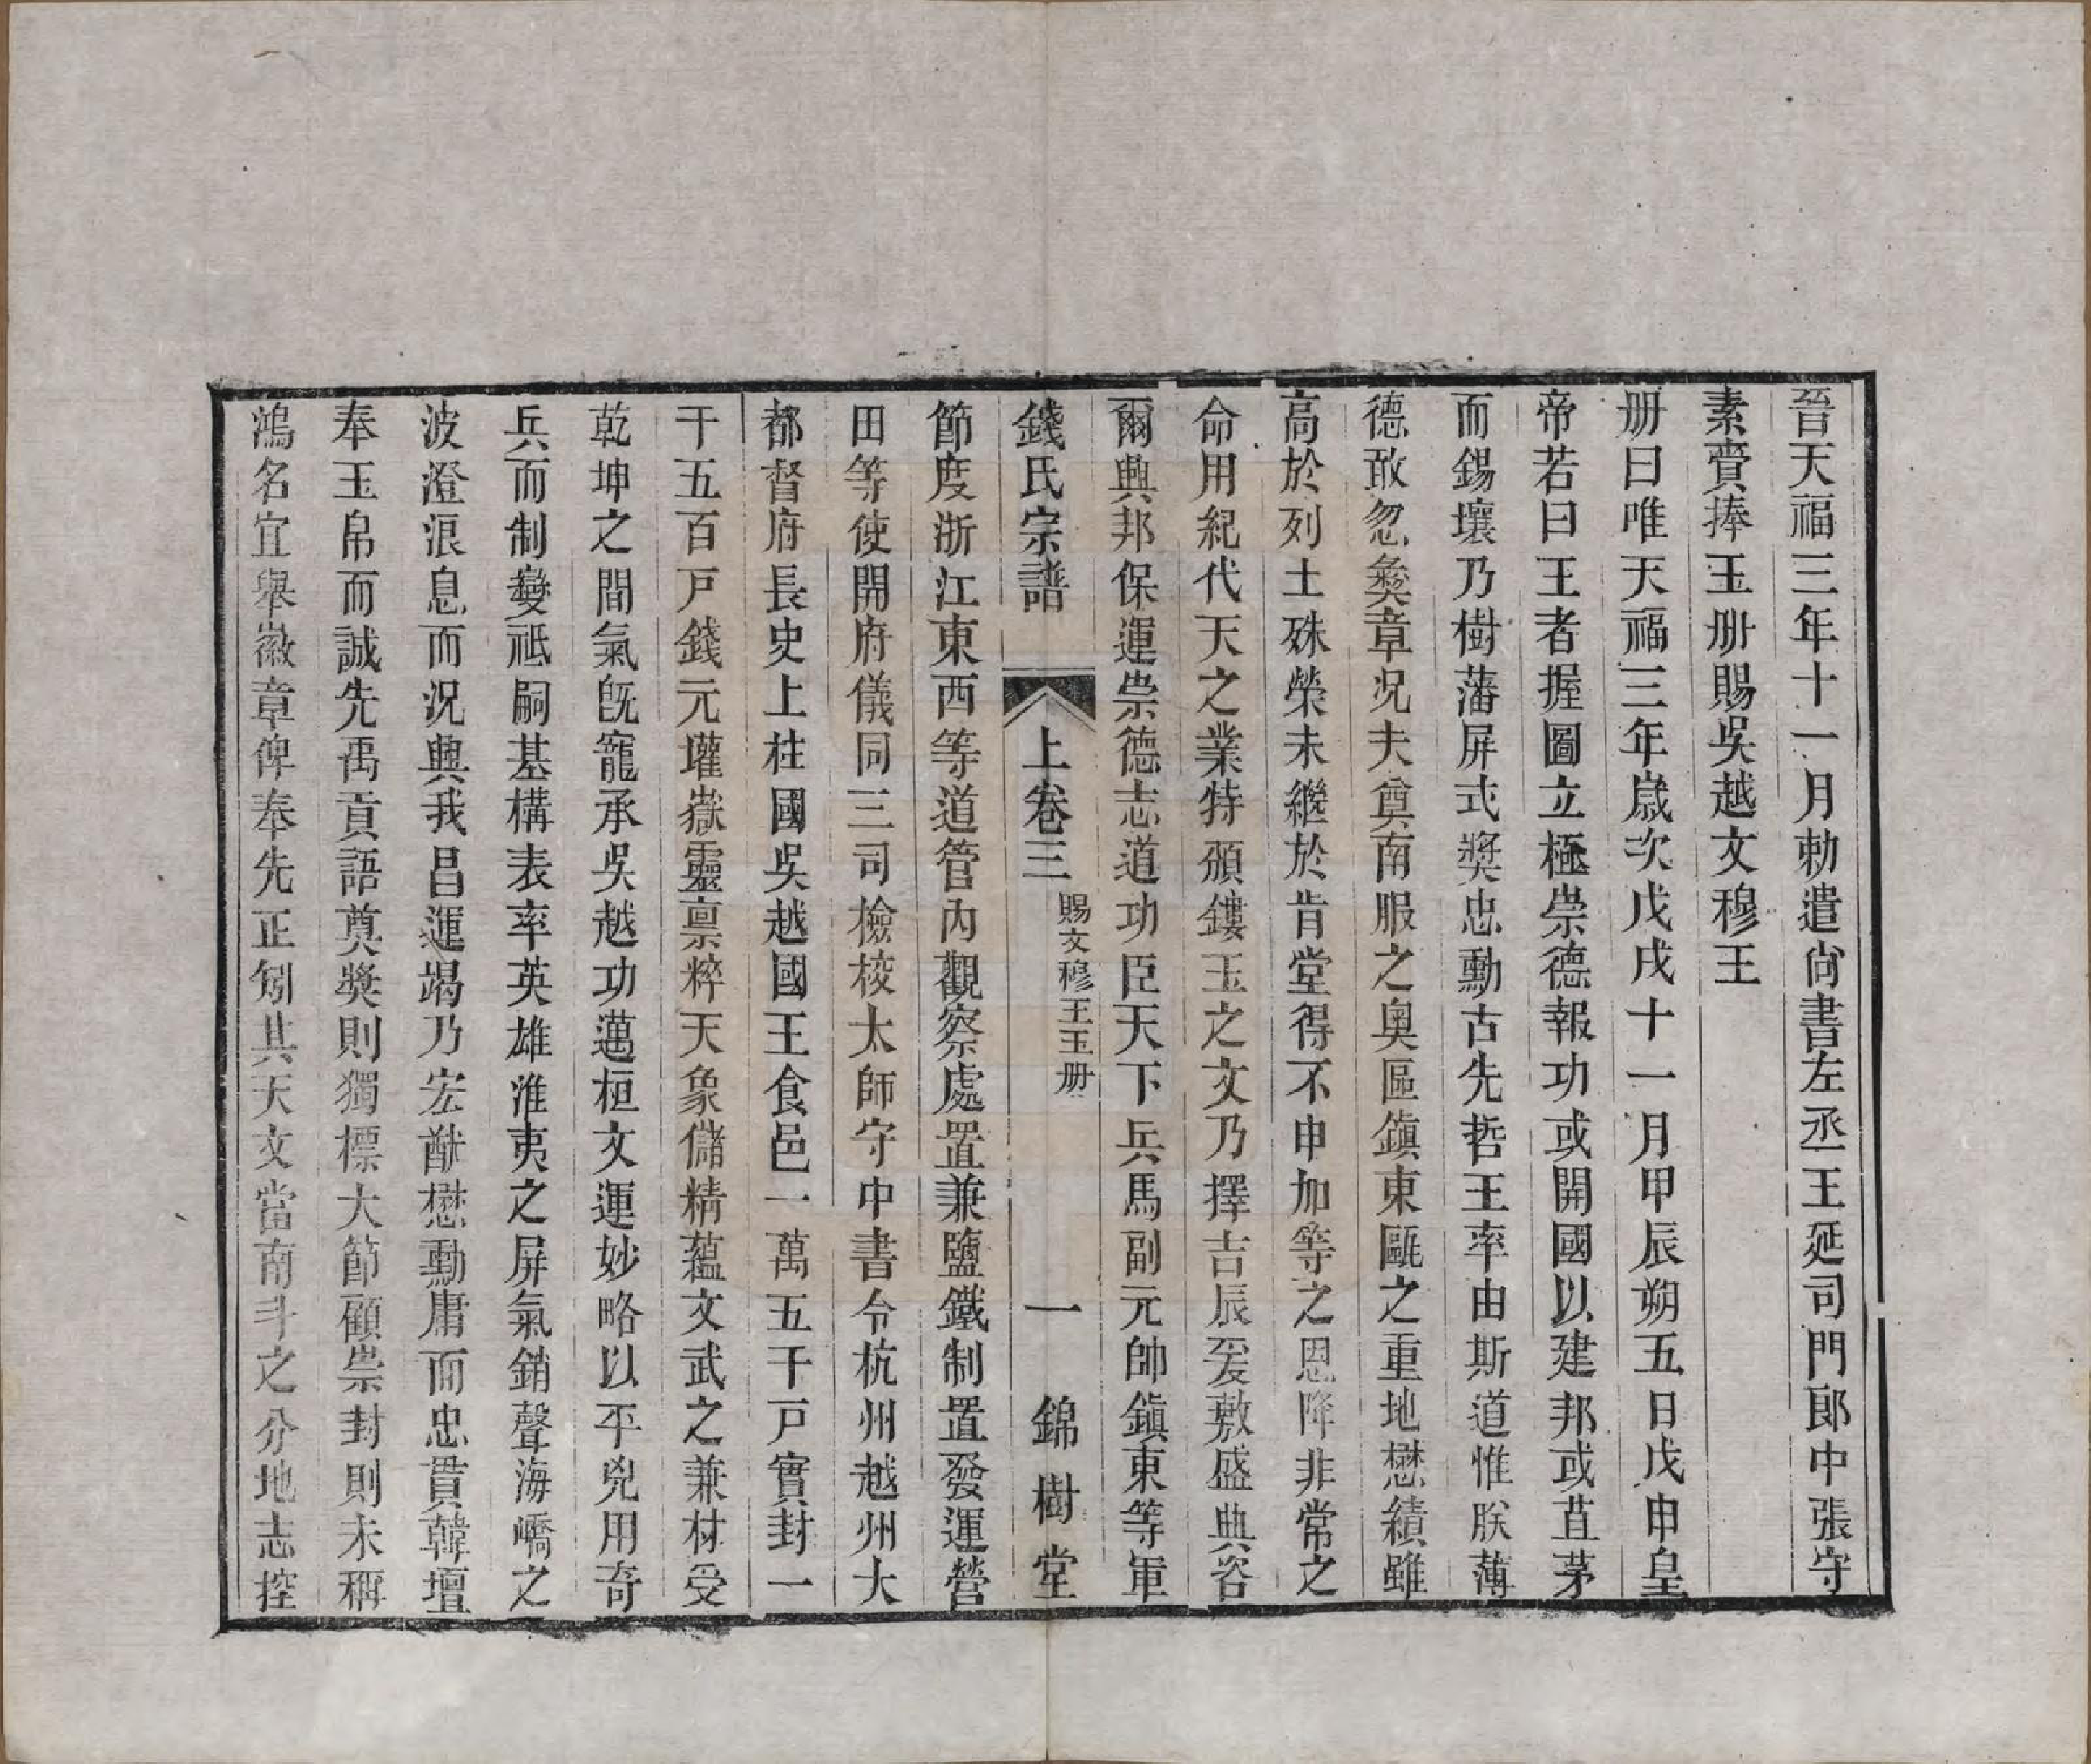 晉天福三年十一月勅遣尙書左丞王延司門郎中張守
素賫捧玉册賜吳越文穆王
册曰唯天福三年歲次戊戌十一月甲辰朔五日戊申皇
帝若曰王者握圖立極崇德報功或開國以建邦或苴茅
而錫壤乃樹藩屏式奬忠勳古先哲王率由斯道惟朕薄
德敢忽彝章况夫奠南服之奧區鎭東甌之重地懋績雖
高於列土硃榮未繼於肯堂得不申加等之恩降非常之
命用紀代天之業特頒鏤玉之文乃擇吉辰爰敷盛典咨
爾興邦保運崇德志道功臣天下兵馬副元帥鎭東等軍
錢氏宗譜 上卷三 賜文穆王玉册 一 錦樹堂
節度浙江東西等道管內觀察處置兼鹽鐵制置發運營
田等使開府儀同三司檢校太師守中書令杭州越州大
都督府長史上柱國吳越國王食邑一萬五千戸實封一
千五百戸錢元瓘嶽靈禀粹天象儲精蘊文武之兼材受
乾坤之間氣旣寵承吳越功邁桓文運妙略以平兇用奇
兵而制變祗嗣基構表率英雄淮夷之屏氣銷聲海嶠之
波澄浪息而況興我昌運竭乃宏猷懋勳庸而忠貫韓壇
奉玉帛而誠先禹貢語奠奬則獨標大節顧崇封則未稱
鴻名宜舉徽章俾奉先正矧其天文當南斗之分地志控